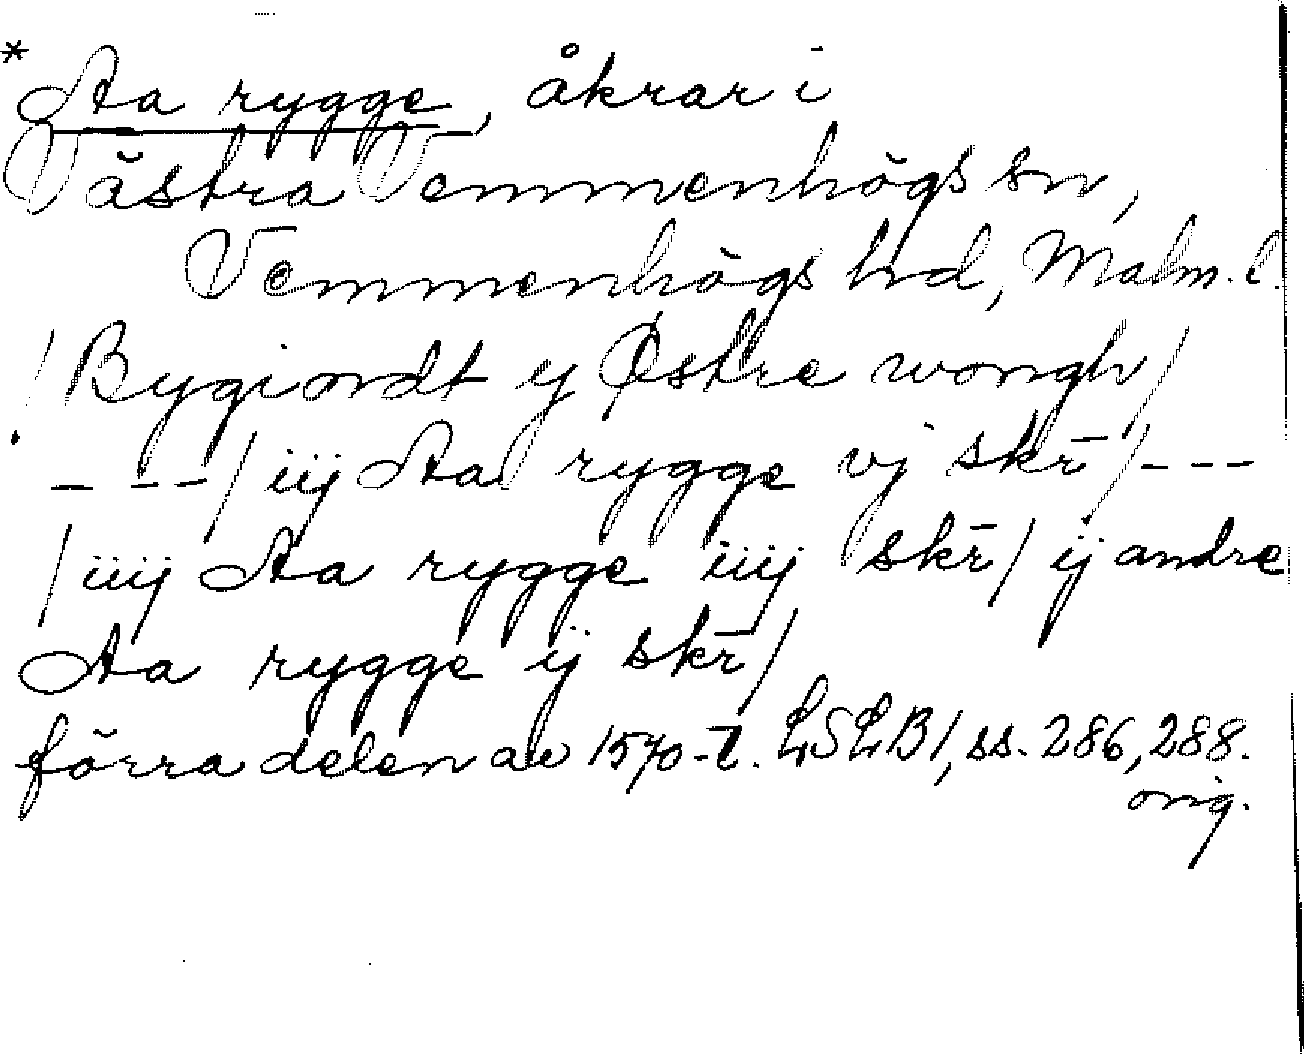 * Aa rygge, åkrar i
Västra Vemmenhögs sn,
Vemmenhögs hd, Malm. l.
/ Bygiordt y Østre wongh /
- - - / iij Aa rygge vj skr̄ / - - -
/ iiij Aa rygge iiij skr̄ / ij andre
Aa rygge ij skr̄ /
förra delen av 1570-t. LSLB1, ss. 286, 288.
orig.